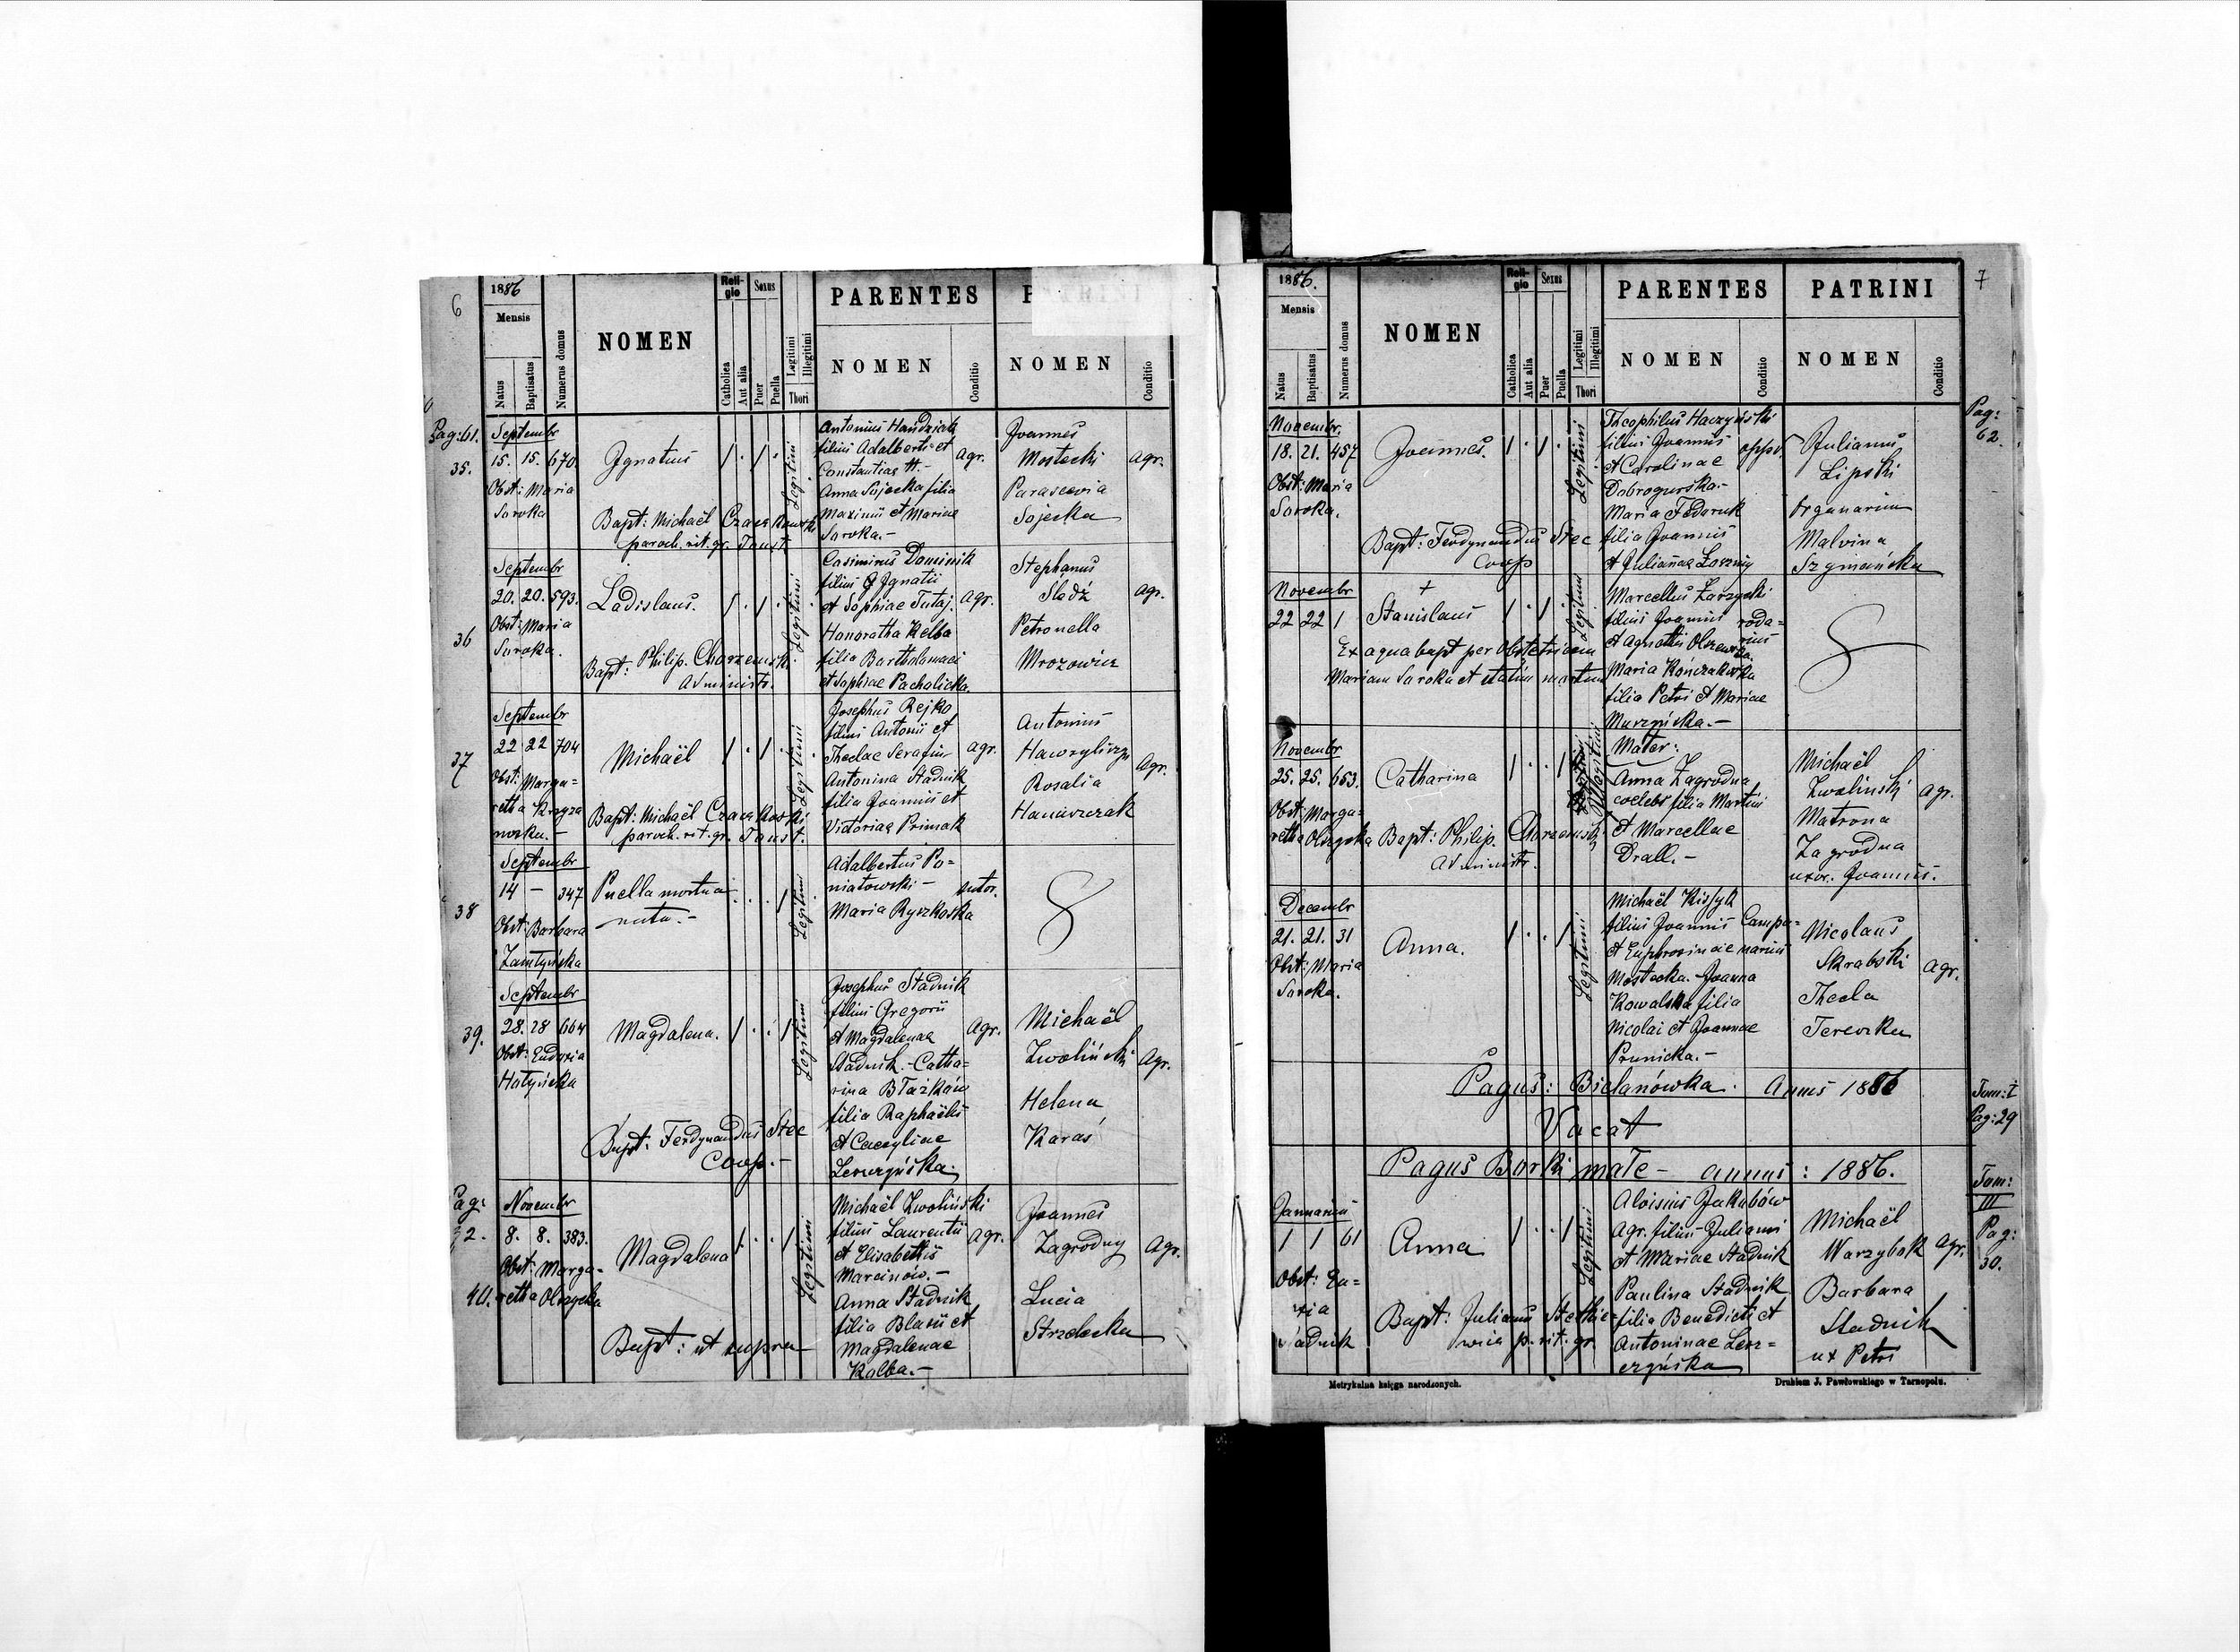 6
1886
Mensis
Natus
Baptisatus
Numerus domus
NOMEN
Religio
Catholica
Aut alia
Sexus
Puer
Puella
Legitimi
Illegitimi
Thori
PARENTES
NOMEN
Conditio
NOMEN
Conditio
Pag: 61.
35.
Septembr
15. 15. 670.
Obst: Maria
Soroka
Ignatius
Bapt: Michaël Czaczkowski
paroch. rit. gr. Toust
Legitimi
Antonius Handziak
filius Adalberti et
Constantiae H.-
Anna Sojecka filia
Maximi et Mariae
Soroka.-
Agr.
Joannes
Mostecki
Parascevia
Sojecka
Agr.
36
Septembr
20. 20. 593.
Obst: Maria
Soroka.
Ladislaus.
Bapt: Philip. Chorzemski
Administr.
Legitimi
Casimirus Dominik
filius Ignatii
et Sophiae Tutaj.
Honoratha Kelba
filia Bartholomaei
et Sophiae Pacholicka.
Agr.
Stephanus
Śledź
Petronella
Mrozowicz
Agr.
37
Septembr
22 22 704
Obst: Marga=
retta
Michaël
Bapt: Michaël Czaczkowski
paroch. rit. gr. Toust.
Legitimi
Josephus Rejko
filius Antonii et
Theclae Serafin
Antonina Stadnik
filia Joannis et
Victoriae Primak
Agr.
Antonius
Rosalia
Agr.
38
Septembr
14 - 347
Obst: Barbara
Puella mortua
nata.-
Legitimi
Adalbertus Po=
niatowski -
Maria Ryszkoska
sutor.
39.
Septembr
28. 28 664
Obst: Eudoxia
Hołyńska
Magdalena.
Bapt: Ferdynandus Stec
Coop.-
Legitimi
Josephus Stadnik
filius Gregorii
et Magdalenae
Stadnik.- Catha=
rina Błażków
filia Raphaëlis
et Caecyliae
Leszczyńska.
Agr.
Michaël
Zwoliński
Helena
Karaś
Agr.
Pag:
40.
Novembr
8. 8. 383.
Obst: Marga=
retta Olszycka
Magdalena
Bapt: ut supra
Legitimi
Michaël Zwoliński
filius Laurentii
et Elisabethis
Marcinów.-
Anna Stadnik
filia Blasii et
Magdalenae
Kolba.-
Agr.
Joannes
Zagrodny
Lucia
Strzelecka
Agr.
7
1886.
Mensis
Natus
Baptisatus
Numerus domus
NOMEN
Religio
Catholica
Aut alia
Sexus
Puer
Puella
Legitimi
Illegitimi
Thori
PARENTES
NOMEN
Conditio
PATRINI
NOMEN
Conditio
Pag:
62.
Novembr.
18. 21. 457
Obst: Maria
Soroka.
Joannes.
Bapt: Ferdynandus Stec
Coop
Legitimi
Theophilus Haczyński
filius Joannis
et Carolinae
Dobrogurska.-
Maria Fedaruk
filia Joannis
et Julianae
Julianus
Lipski
Organarius
Malvina
Szymańska
Novembr
22 22 1
Stanislaus
Ex aqua bapt per Obstetricem
Mariam Soroka et statim mortuus
Legitimi
Marcellus Zarzycki
filius Joannis
et Agnethis Olszewska.
Maria Kończakowska
filia Petri et Mariae
Murzyńska.-
Novembr
25. 25. 653.
Obst: Marga=
retta Olszycka
Catharina
Bapt: Philip. Chorzemski
Administr.
Illegitimi
Mater:
Anna Zagrodna
coelebs filia Martini
et Marcellae
Drall.-
Michaël
Zwolinski
Matrona
Zagrodna
uxor. Joannis.
Agr.
Decembr
21. 21. 31
Obst: Maria
Soroka.
Anna.
Legitimi
Michaël Kissyk
filius Joannis
et Euphrosinae
Mostecka.- Joanna
Kowalska filia
Nicolai et Joannae
Prunicka.-
Campa=
narius
Nicolaus
Skrabski
Thecla
Agr.
Pagus: Bielanówka. Annus 1886
Vacat
Tom: I
Pag: 29
Pagus Borki małe - annus: 1886.
Tom:
III
Pag:
30.
Januarius
1 1 61
Obst: Eu=
xia
Stadnik
Anna
Bapt: Julianus Stetkie=
wicz p. rit. gr.
Legitimi
Aloisius Jakubów
Agr. filius Juliani
et Mariae Stadnik
Paulina Stadnik
filia Benedicti et
Antoninae Lesz=
czyńska
Michaël
Warzybok
Barbara
Stadnik
ux Petri
Agr.
Metrykalna księga narodzonych.
Drukiem J. Pawłowskiego w Tarnopolu.